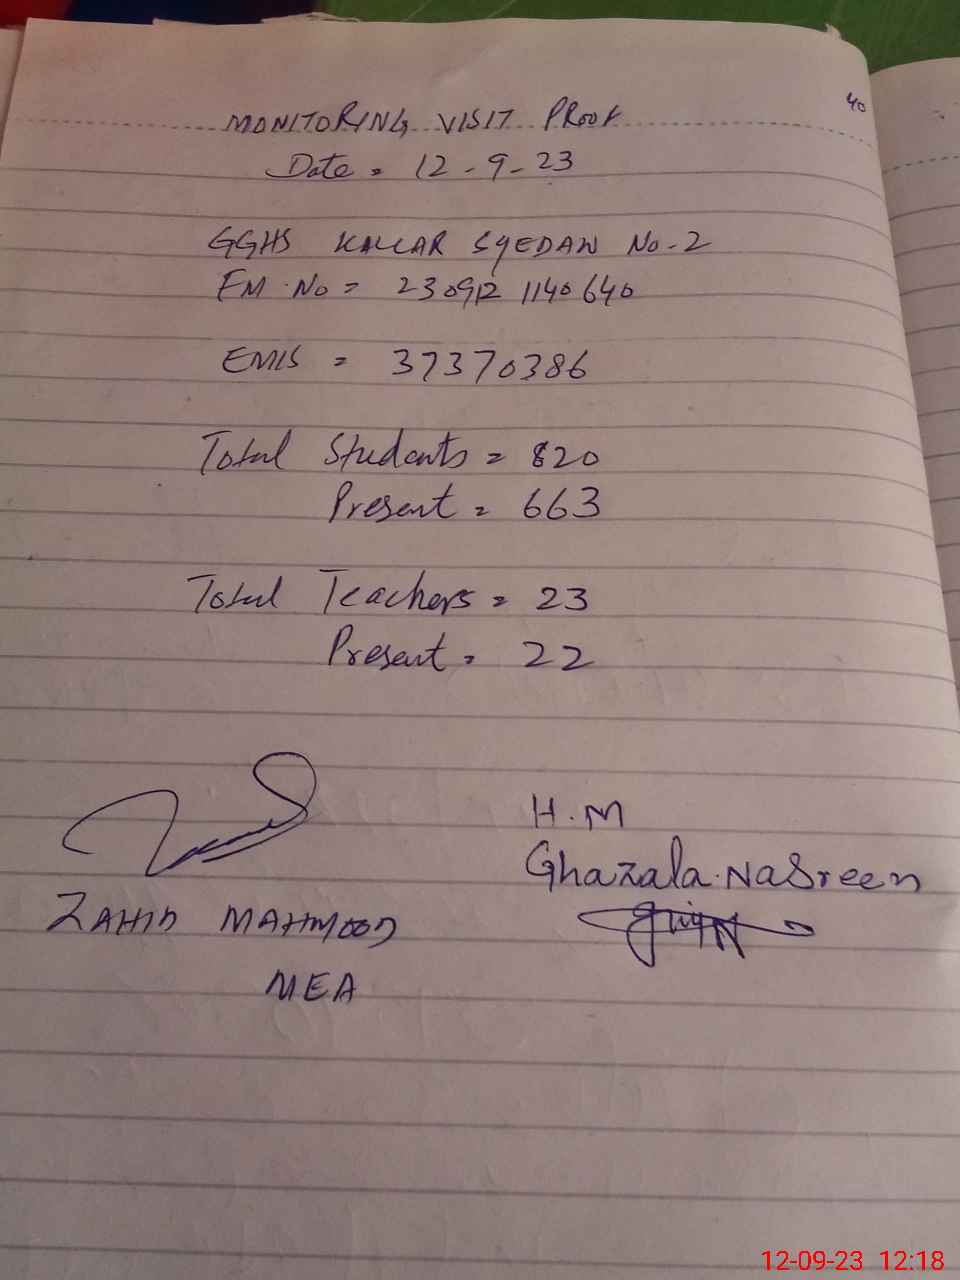 40
MONITORING VISIT PROOF
Date = 12-9-23
GGHS KALLAR SYEDAN No-2
EM.No = 230912 1140640
EMIS = 37370386
Total Students = 820
Present = 663
Total Teachers = 23
Present = 22
H.M
Ghazala.Nasreen
ZAHID MAHMOOD
MEA
12-09-23 12:18